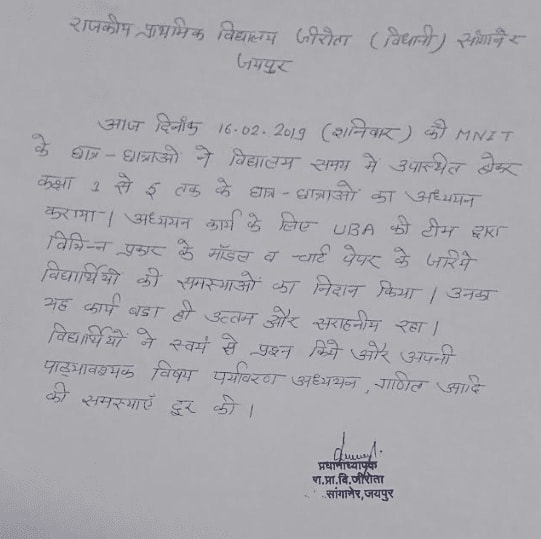 राजकीय प्राथमिक विद्यालय जीरोता (विधानी) सांगानेर
जयपुर
आज दिनाँक 16.02.2019 (शनिवार) को MNIT
के छात्र-छात्राओ ने विद्यालय समय मे उपस्थित होकर
कक्षा 1 से 5 तक के छात्र-छात्राओं का अध्ययन
कराया। अध्ययन कार्य के लिए UBA की टीम द्वारा
विभिन्न प्रकार के मॉडल व चार्ट पेपर के जरिये
विद्यार्थियो की समस्याओं का निदान किया। उनका
यह कार्य बडा ही उत्तम और सराहनीय रहा।
विद्यार्थियों ने स्वयं से प्रश्न किये और अपनी
विषय पर्यावरण अध्ययन, गणित आदि
की समस्याएँ दूर की।
प्रधानाध्यापक
रा.प्रा.वि.जीरोता
सांगानेर,जयपुर